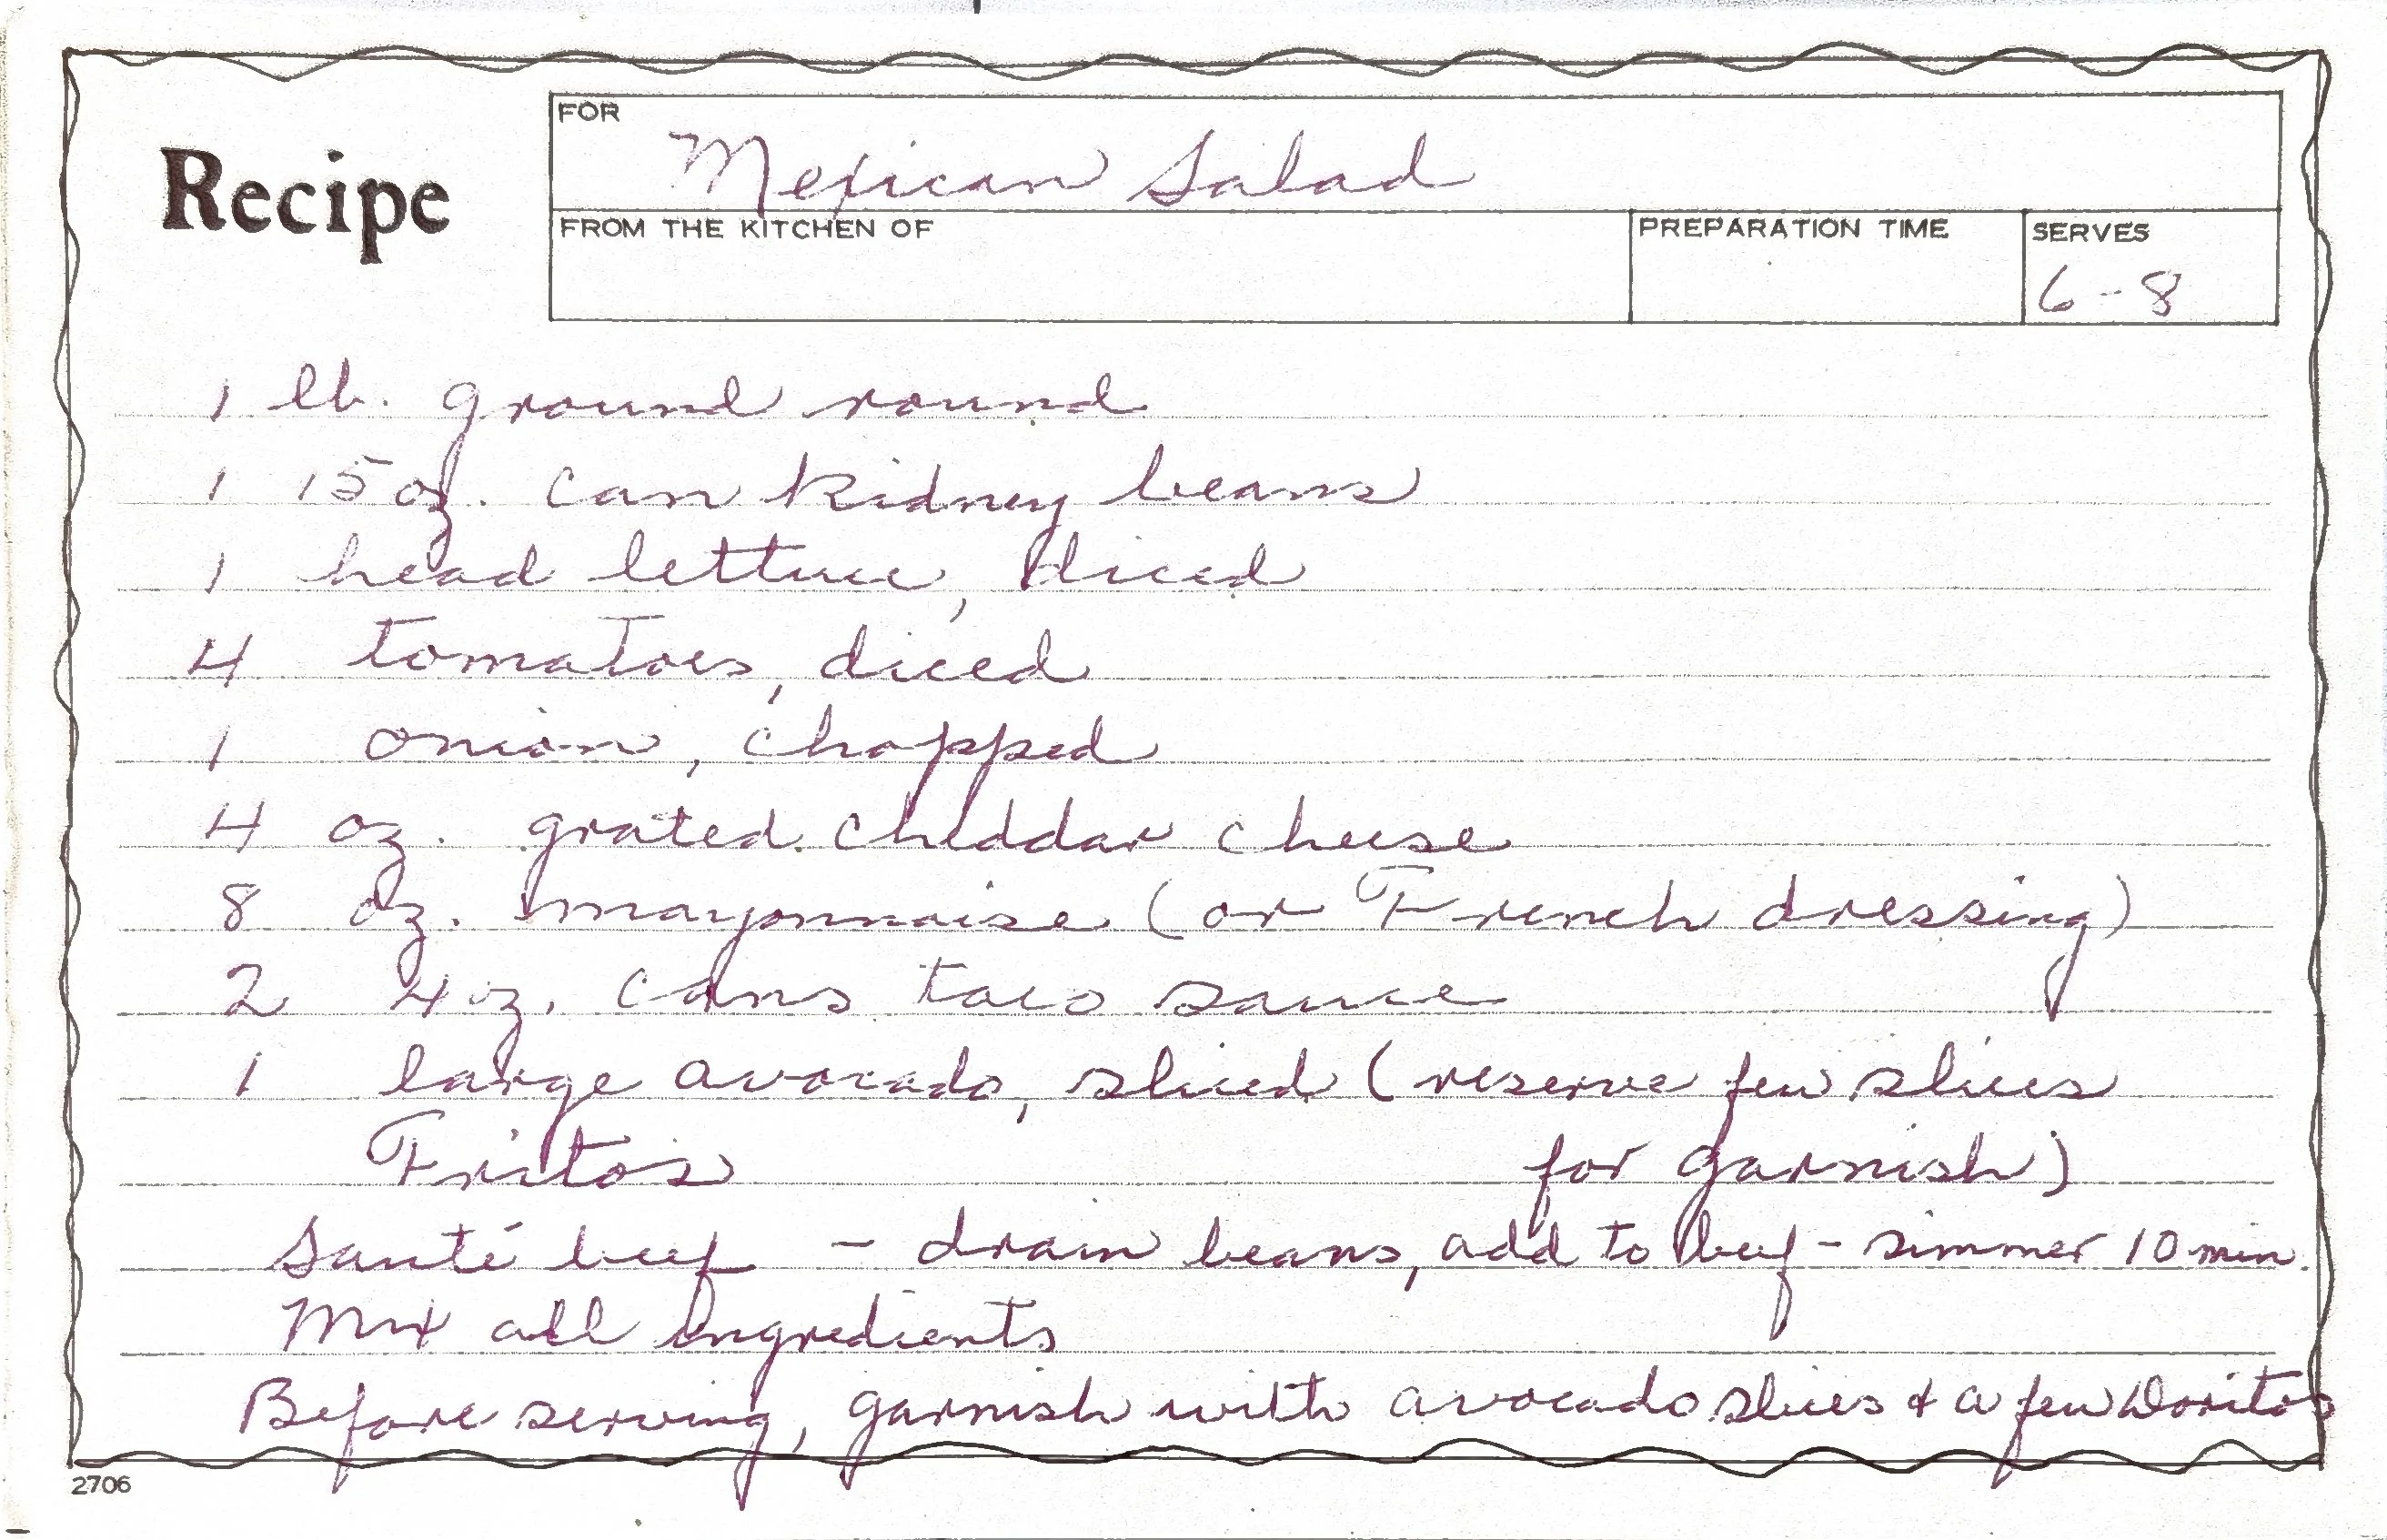 Recipe
FOR
Mexican Salad
FROM THE KITCHEN OF
PREPARATION TIME
SERVES
6-8
1 lb. ground round
1 15 oz. can kidney beans
1 head lettuce, diced
4 tomatoes, diced
1 onion, chopped
4 oz. grated cheddar cheese
8 oz. mayonnaise (or French dressing)
2 4 oz. cans taco sauce
1 large avocado, sliced (reserve few slices
Fritos for garnish)
Sauté beef - drain beans, add to beef - simmer 10 min.
Mix all ingredients
Before serving, garnish with avocado slices & a few Doritos
2706